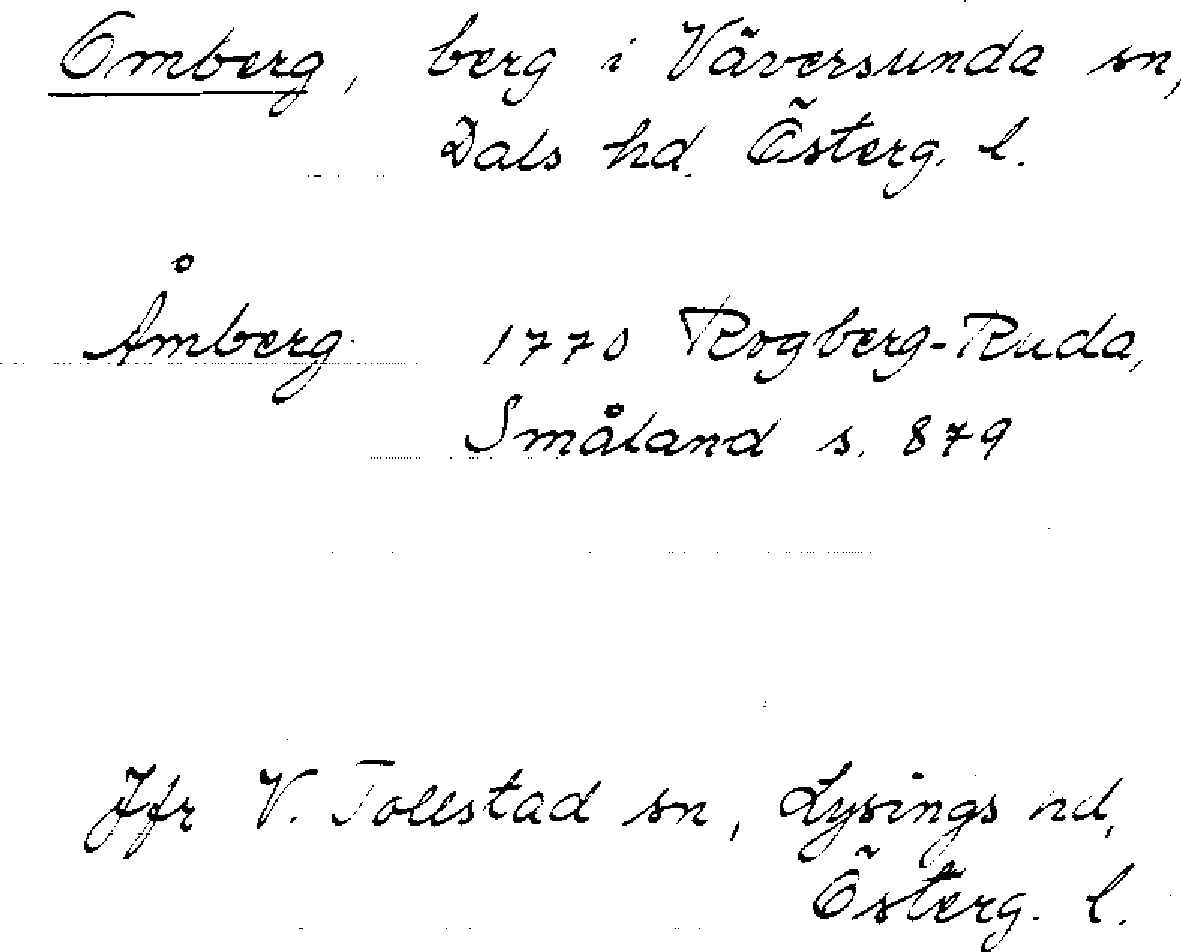 Omberg, berg i Väversunda sn,
Dals hd. Österg. l.
Åmberg 1770 Rogberg-Ruda,
Småland s. 879
Jfr V. Tollstad sn, Lysings hd,
Österg. l.